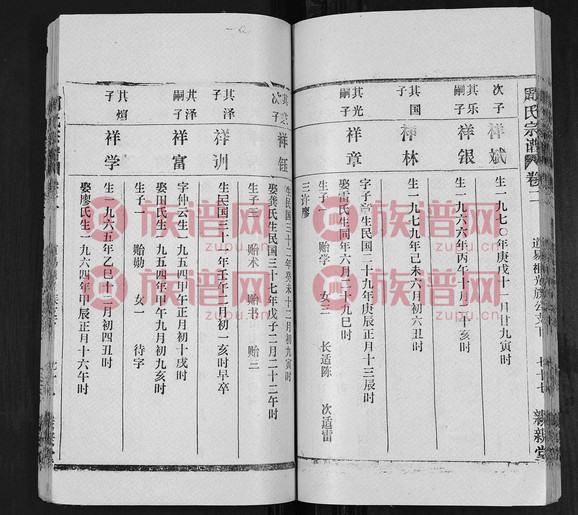 周氏宗谱
卷二
七十七
亲亲堂
次子
祥斌
生一九七〇年庚戌十一月廿九寅时
其乐嗣子
祥银
生一九六六年丙午十月二十午时
其国子
祥林
生一九七九年己未六月初六丑时
其光子
祥章
生民国二十九年庚辰正月十三辰时
娶雷氏生同年六月二十九巳时
生子一 贻学 女三 长适陈 次适雷
三许廖
次子
祥钰
生民国三十二年癸未十二月初九寅时
娶龚氏生民国三十七年戊子二月二十二午时
生子三 贻术 贻书 贻三
其泽子
祥训
生民国三十一年壬午二月初一亥时早卒
其泽嗣子
祥富
字仲云生一九五四年甲午正月初十戌时
娶田氏生一九五四年甲午九月初九亥时
生子一 贻勋 女一 待字
其煊子
祥学
生一九六五年乙巳十二月初四丑时
娶廖氏生一九六四年甲辰正月十六午时
族谱网
zupu.cn